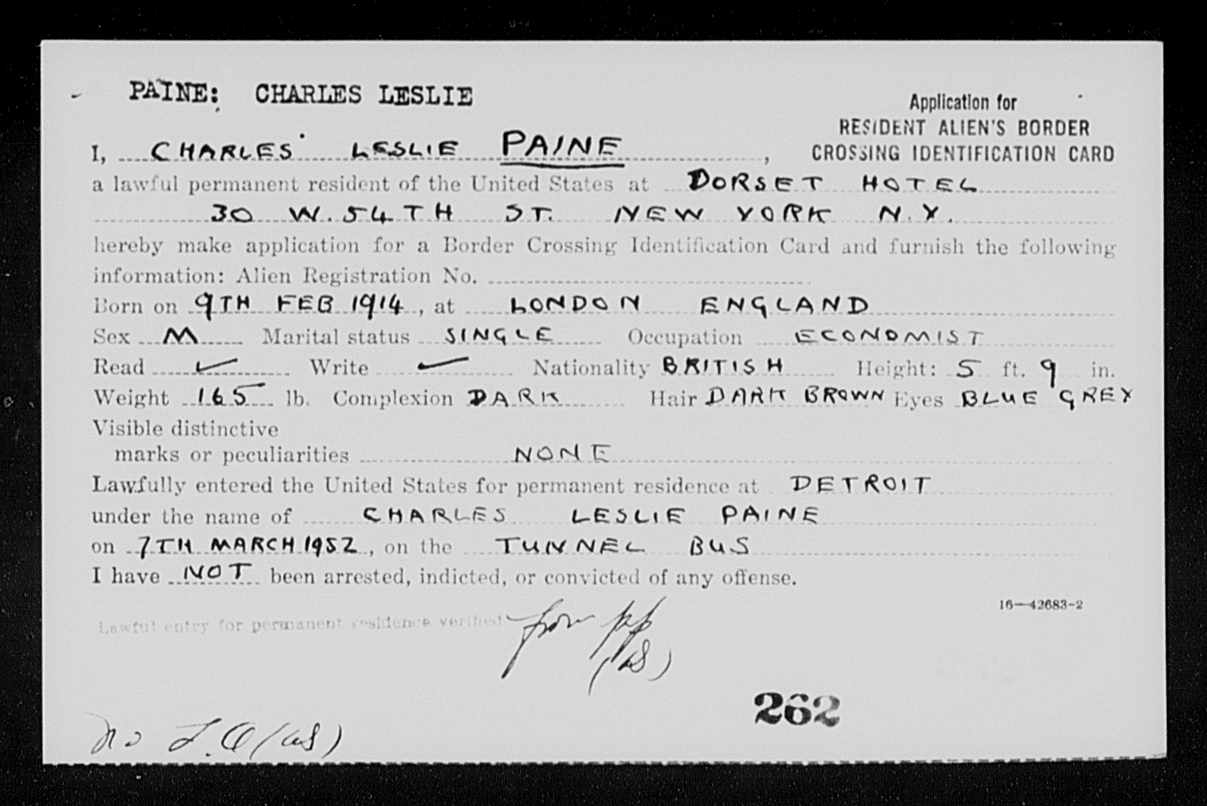 PAINE: CHARLES LESLIE
Application for
RESIDENT ALIEN'S BORDER
CROSSING IDENTIFICATION CARD
I, CHARLES LESLIE PAINE,
a lawful permanent resident of the United States at DORSET HOTEL
30 W. 54TH ST. NEW YORK N.Y.
hereby make application for a Border Crossing Identification Card and furnish the following
information: Alien Registration No.
Born on 9TH FEB 1914, at LONDON ENGLAND
Sex M Marital status SINGLE Occupation ECONOMIST
Read ✓ Write ✓ Nationality BRITISH Height: 5 ft. 9 in.
Weight 165 lb. Complexion DARK Hair DARK BROWN Eyes BLUE GREY
Visible distinctive
marks or peculiarities NONE
Lawfully entered the United States for permanent residence at DETROIT
under the name of CHARLES LESLIE PAINE
on 7TH MARCH 1952, on the TUNNEL BUS
I have NOT been arrested, indicted, or convicted of any offense.
16—42683-2
Lawful entry for permanent residence verified
from pp
262
no